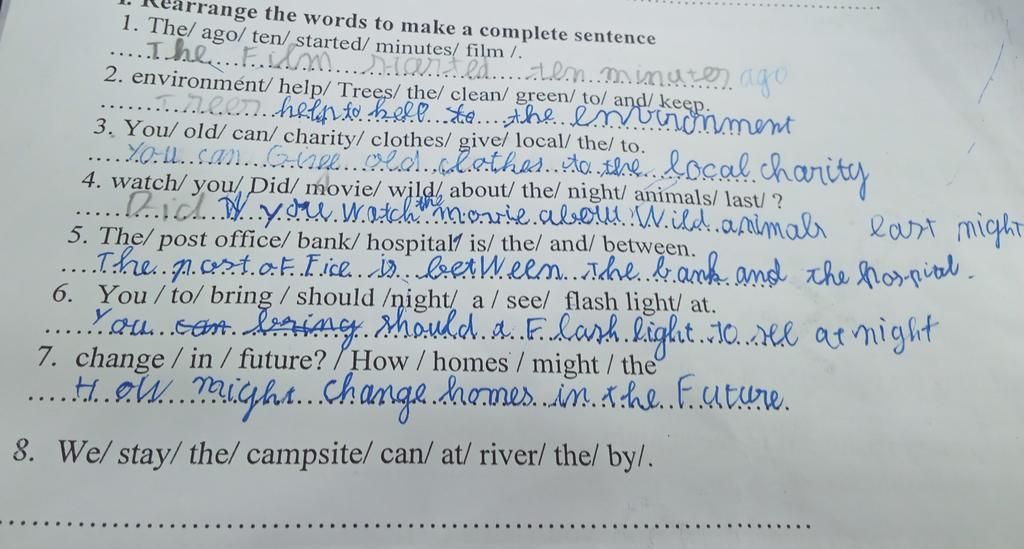 I. Rearrange the words to make a complete sentence
1. The/ ago/ ten/ started/ minutes/ film /.
The Film started ten minutes ago
2. environment/ help/ Trees/ the/ clean/ green/ to/ and/ keep.
Trees help to keep to the environment
3. You/ old/ can/ charity/ clothes/ give/ local/ the/ to.
You can Give old clothes to the local charity
4. watch/ you/ Did/ movie/ wild/ about/ the/ night/ animals/ last/ ?
Did you watch the movie about Wild animals last night
5. The/ post office/ bank/ hospital/ is/ the/ and/ between.
The post oFFice is between the bank and the hospital.
6. You / to/ bring / should /night/ a / see/ flash light/ at.
You can bring should a Flash light to see at night
7. change / in / future? / How / homes / might / the
How might change homes in the Future.
8. We/ stay/ the/ campsite/ can/ at/ river/ the/ by/.